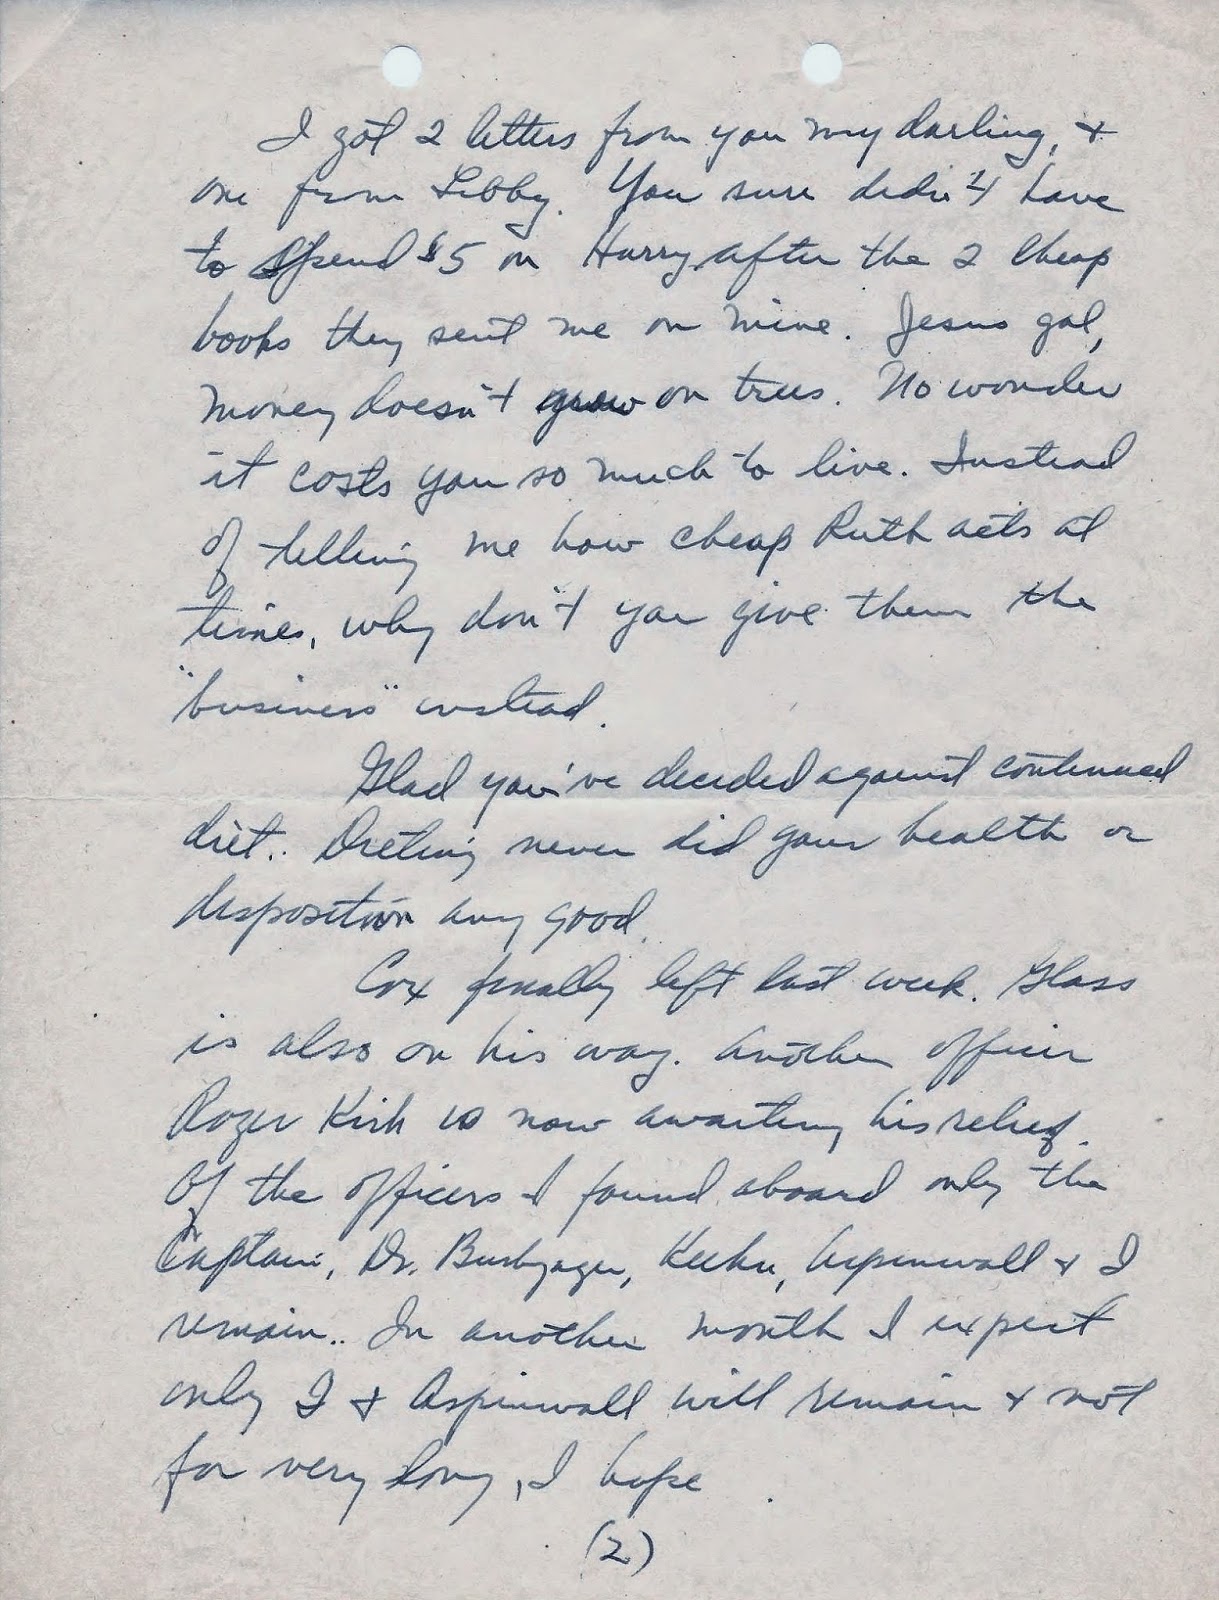 I got 2 letters from you my darling, +
one from Libby. You sure didn't have
to spend $5 on Harry after the 2 cheap
books they sent me on mine. Jesus gal,
money doesn't grow on trees. No wonder
it costs you so much to live. Instead
of telling me how cheap Ruth acts at
times, why don't you give them the
"business" instead.
Glad you've decided against continued
diet.. Dieting never did your health or
disposition any good.
Cox finally left last week. Glass
is also on his way. Another officer
Roger Kirk is now awaiting his relief.
Of the officers I found aboard only the
Captain, Dr. Keehn, Aspinwall + I
remain.. In another month I expect
only I + Aspinwall will remain + not
for very long, I hope.
(2)